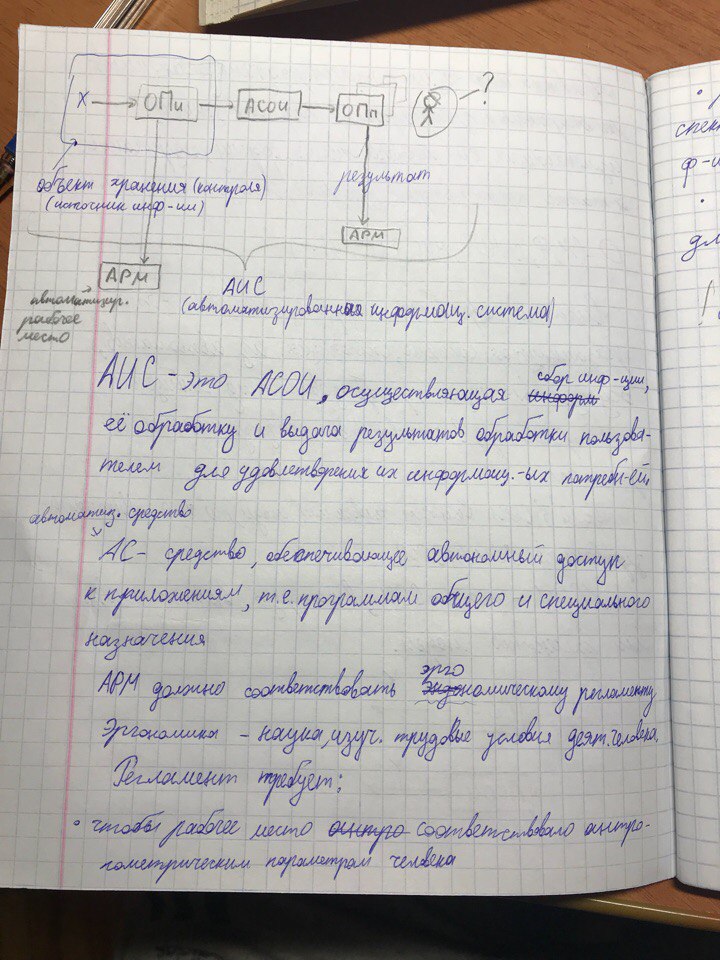 ?
X → ОПи → АСОИ → ОПп
объект хранения (контроля)
(источник инф-ии)
результат
АРМ
АРМ
автоматизир.
рабочее
место
АИС
(автоматизированная информац. система)
АИС - это АСОИ, осуществляющая сбор инф-ции,
её обработку и выдача результатов обработки пользова-
телем для удовлетворения их информац.-ых потребн-ей.
автоматиз. средство
АС - средство, обеспечивающее автономный доступ
к приложениям, т.е. программам общего и специального
назначения
эрго
АРМ должно соответствовать номическому регламенту.
Эргономика - наука, изуч. трудовые условия деят. человека.
Регламент требует:
• чтобы рабочее место соответствовало антро-
пометрическим параметрам человека
спек
ф-и
•
дл